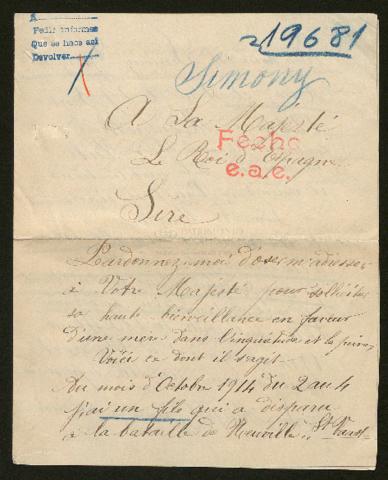 A
Pedir informes
Que se hace así
Devolver
19681
Simony
A Sa Majesté
Le Roi d'Espagne
Fecho
e.a.e.
Sire
Pardonnez-moi d'oser m'adresser
à Votre Majesté pour solliciter
sa haute bienveillance en faveur
d'une mère dans l'inquiétude et la peine,
Voici ce dont il s'agit.
Au mois d'Octobre 1914 du 2 au 4
j'ai un fils qui a disparu
à la bataille de Neuville St Vaast